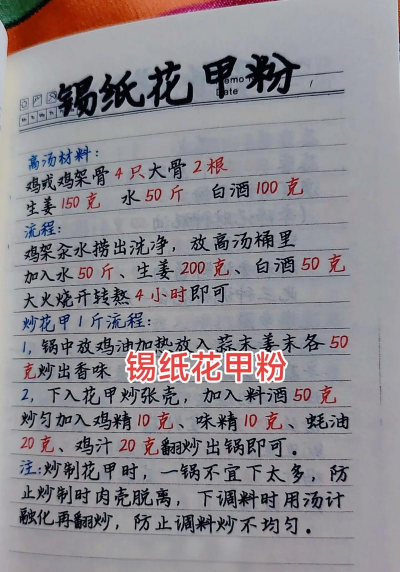 锡纸花甲粉
emo
Date
高汤材料：
鸡或鸡架骨4只大骨2根
生姜150克 水50斤 白酒100克
流程：
鸡架汆水捞出洗净，放高汤桶里
加入水50斤、生姜200克、白酒50克
大火烧开转熬4小时即可
炒花甲1斤流程：
1，锅中放鸡油加热放入蒜末姜末各50
克炒出香味
锡纸花甲粉
2，下入花甲炒张壳，加入料酒50克
炒匀加入鸡精10克、味精10克、蚝油
20克、鸡汁20克翻炒出锅即可。
注：炒制花甲时，一锅不宜下太多，防
止炒制时肉壳脱离，下调料时用汤汁
融化再翻炒，防止调料炒不均匀。